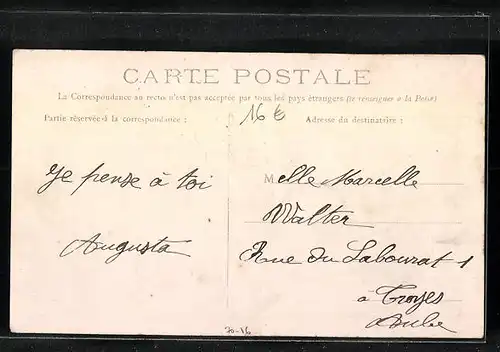 CARTE POSTALE
La Correspondance au recto n'est pas acceptée par tous les pays étrangers (se renseigner à la Poste)
Partie réservée à la correspondance :
16 €
Adresse du destinataire :
Je pense à toi
Augusta
Melle Marcelle
Walter
Rue du Labourat 1
à Troyes
Aube
70-16